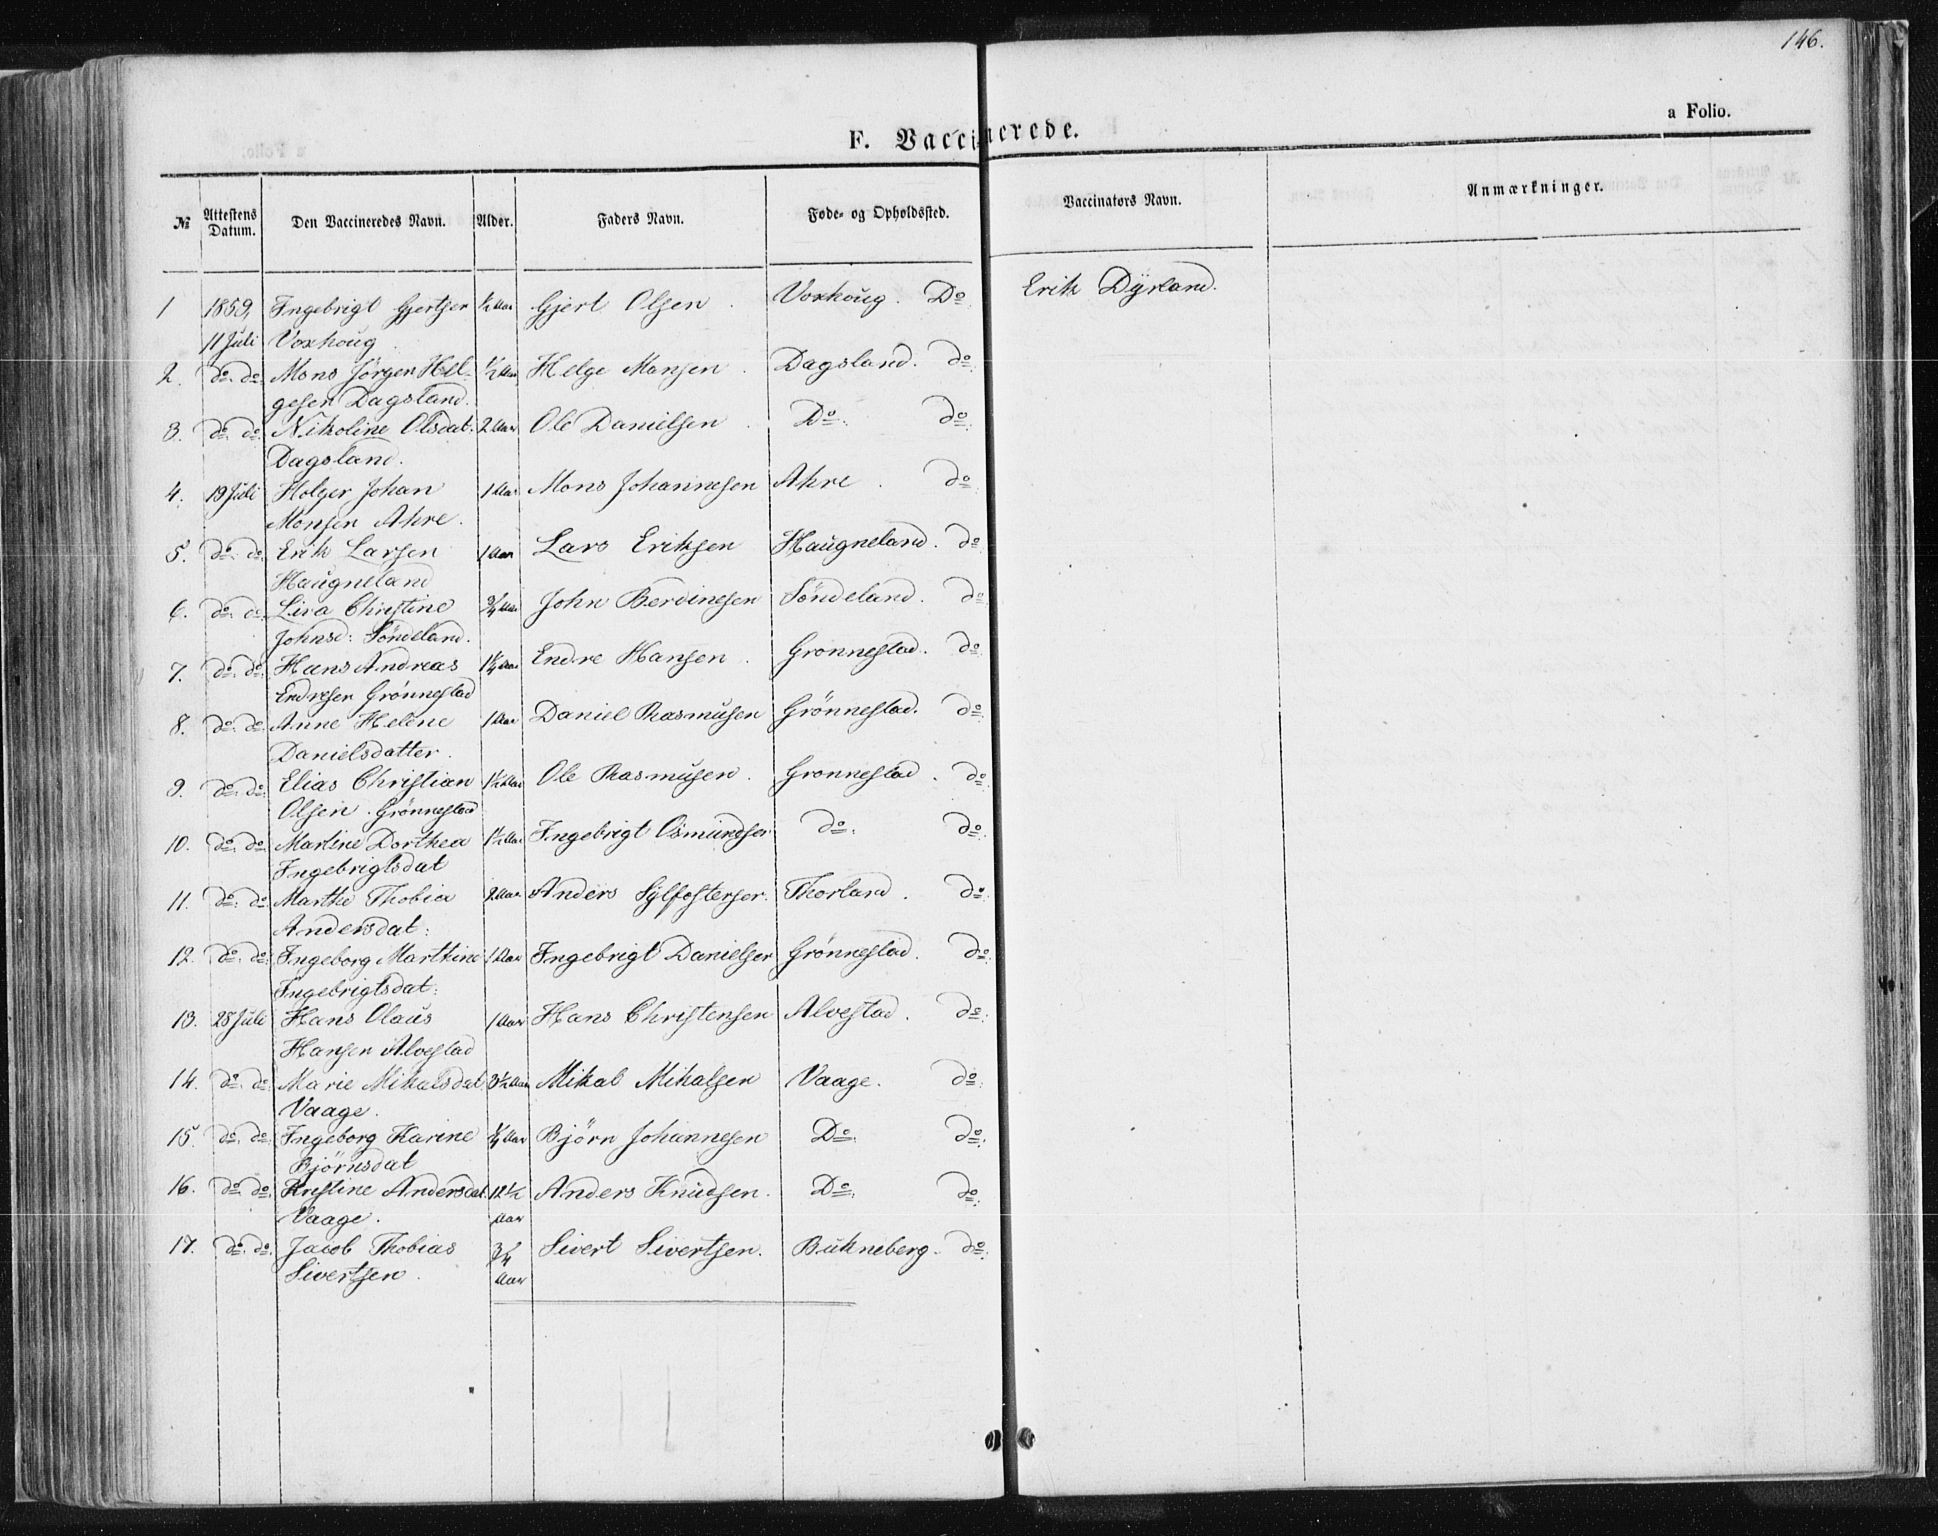 146.
a Folio.
F. Vaccinerede.
№ Attestens Datum. Den Vaccineredes Navn. Alder. Faders Navn. Føde- og Opholdssted. Vaccinators Navn. Anmærkninger.
1 1859, Ingebrigt Gjertsen ½ Aar Gjert Olsen . Voxhoug . Do Erik Dyrland.
11 Juli Voxhoug .
2. do. do Mons Jørgen Hel- ½ Aar Helge Monsen . Dagsland. do
gesen Dagsland.
3. do. do Nikoline Olsdat. 2 Aar Ole Danielsen . Do. do
Dagsland.
4. 19 Juli Holger Johan 1 Aar Mons Johannesen Ahre . do
Monsen Ahre.
5. do. do Erik Larsen 1 Aar Lars Eriksen Haugneland. do
Haugneland
6. do. do Lisa Christine ¾ Aar John Berdinesen Söndeland. do
Johnsd: Söndeland.
7. do. do. Hans Andreas 1¼ Aar Endre Hansen . Gronnestad. do
Endresen Grönnestad
8. do. do. Anne Helene 1 Aar Daniel Rasmusen Grönnestad. do
Danielsdatter.
9. do. do. Elias Christian 1½ Aar Ole Rasmusen. Gronnestad . do
Olsen . Grönnestad
10. do. do. Martine Dorthea 1½ Aar Ingebrigt Osmundsen do. do.
Ingebrigtsdat
11. do. do Marthe Thobia 2 Aar Anders Sylfestersen. Thorland . do
Andersdat:
12. do. do. Ingeborg Marthine 1 Aar Ingebrigt Danielsen Grönnestad. do
Ingebrigtsdat:
13. 28 Juli Hans Olaus 1 Aar Hans Christensen Alvestad . do.
Hansen Alvestad
14. do. do. Marie Mikalsdat 3½ Aar Mikal Mikalsen Vaage. do.
Vaage.
15. do. do. Ingeborg Karine ¾ Aar Björn Johannesen Do. do.
Björnsdat
16. do. do. Kristine Andersdat 12½ Anders Knudsen. Do. do.
Vaage. Aar
17. do. do. Jacob Thobias ¾ Sivert Sivertsen. Bukneberg. do.
Sivertsen . Aar